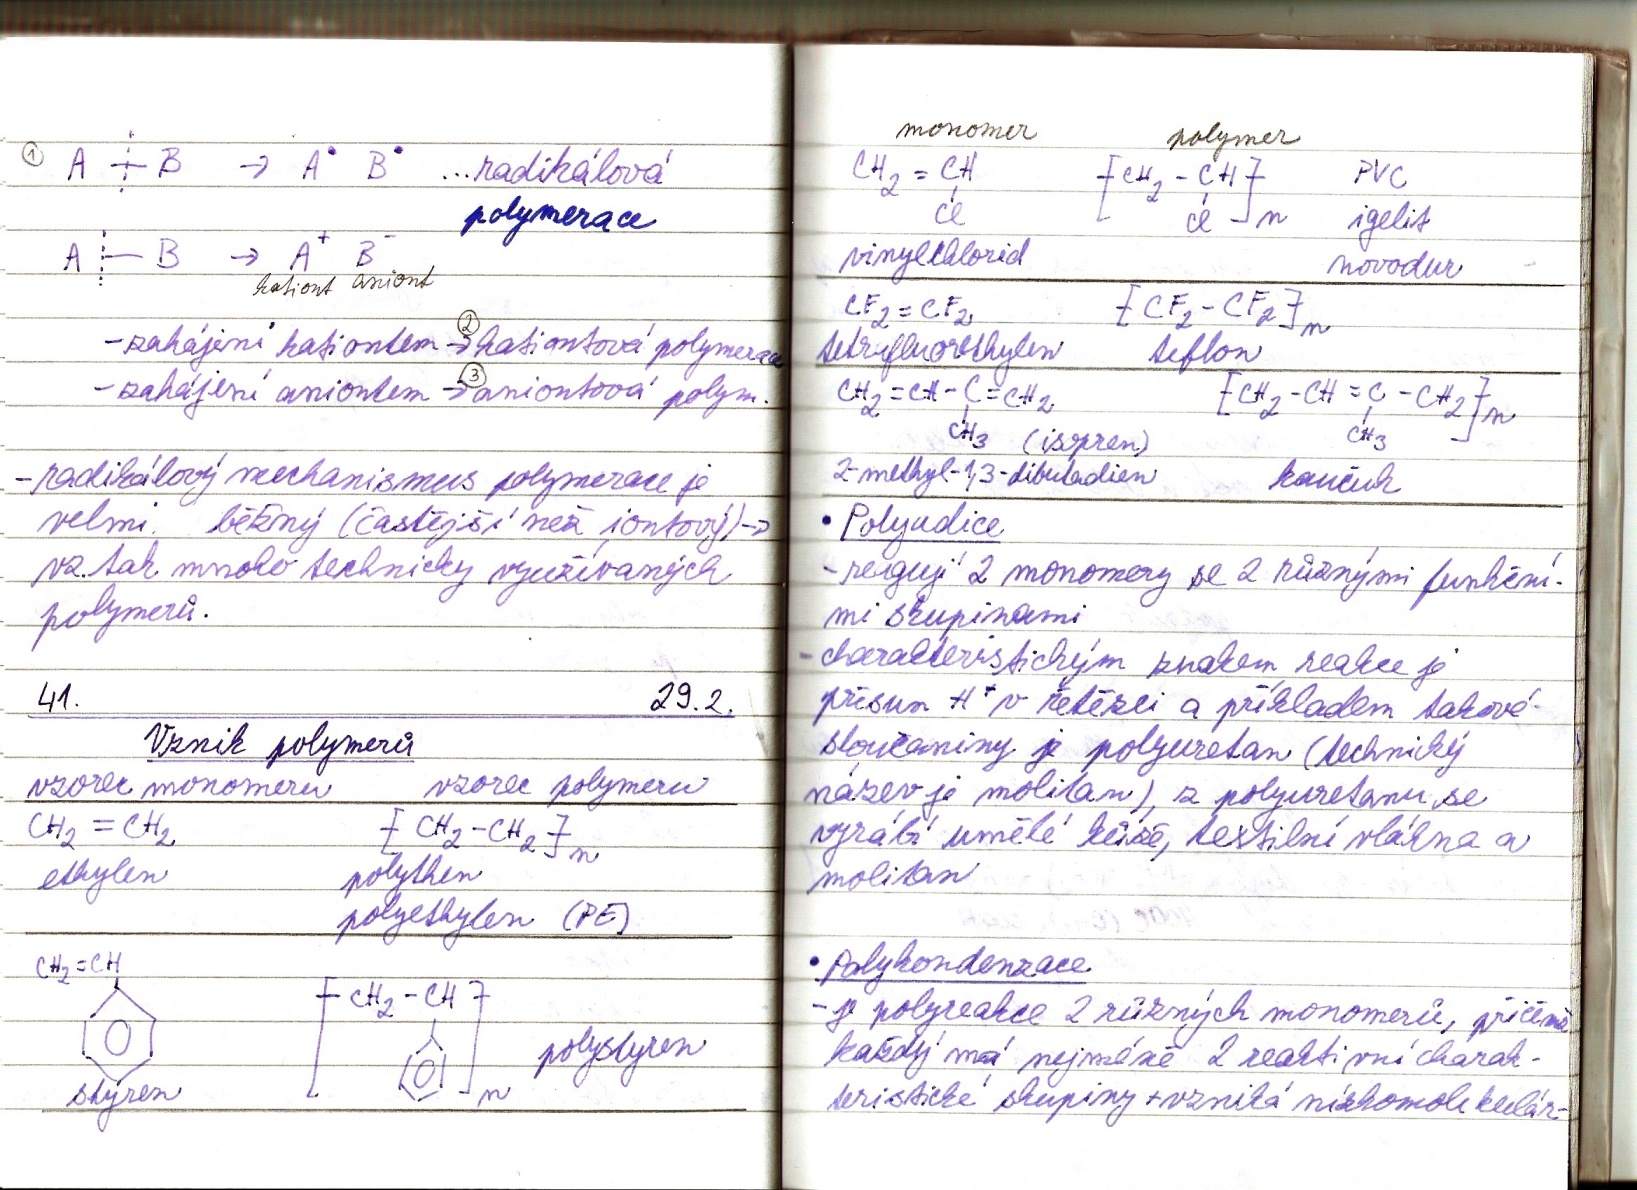 ① A + B → A• B• ...radikálová
polymerace
A — B → A⁺ B⁻
kationt aniont
-zahájení kationtem →② kationtová polymerace
-zahájení aniontem →③ aniontová polym.
-radikálový mechanismus polymerace je
velmi běžný (častější než iontový) →
vz. tak mnoho technicky využívaných
polymerů.
41. 29.2.
Vznik polymerů
vzorec monomeru vzorec polymeru
CH₂ = CH₂ [CH₂-CH₂]n
ethylen polythen
polyethylen (PE)
CH₂=CH
[-CH₂-CH]n
polystyren
styren
monomer polymer
CH₂ = CH [CH₂ - CH]n PVC
Cl Cl igelit
vinylchlorid novodur
CF₂=CF₂ [CF₂-CF₂]n
tetrafluorethylen teflon
CH₂=CH-C=CH₂ [CH₂-CH=C-CH₂]n
CH₃ (isopren) CH₃
2-methyl-1,3-dibutadien kaučuk
• Polyadice
-reagují 2 monomery se 2 různými funkční-
mi skupinami
- charakteristickým znakem reakce je
přesun H⁺ v řetězci a příkladem takové
sloučeniny je polyuretan (technický
název je molitan), z polyuretanu se
vyrábí umělé kůže, textilní vlákna a
molitan
• Polykondenzace
-je polyreakce 2 různých monomerů, přičemž
každý má nejméně 2 reaktivní charak-
teristické skupiny + vzniká nízkomolekulár-